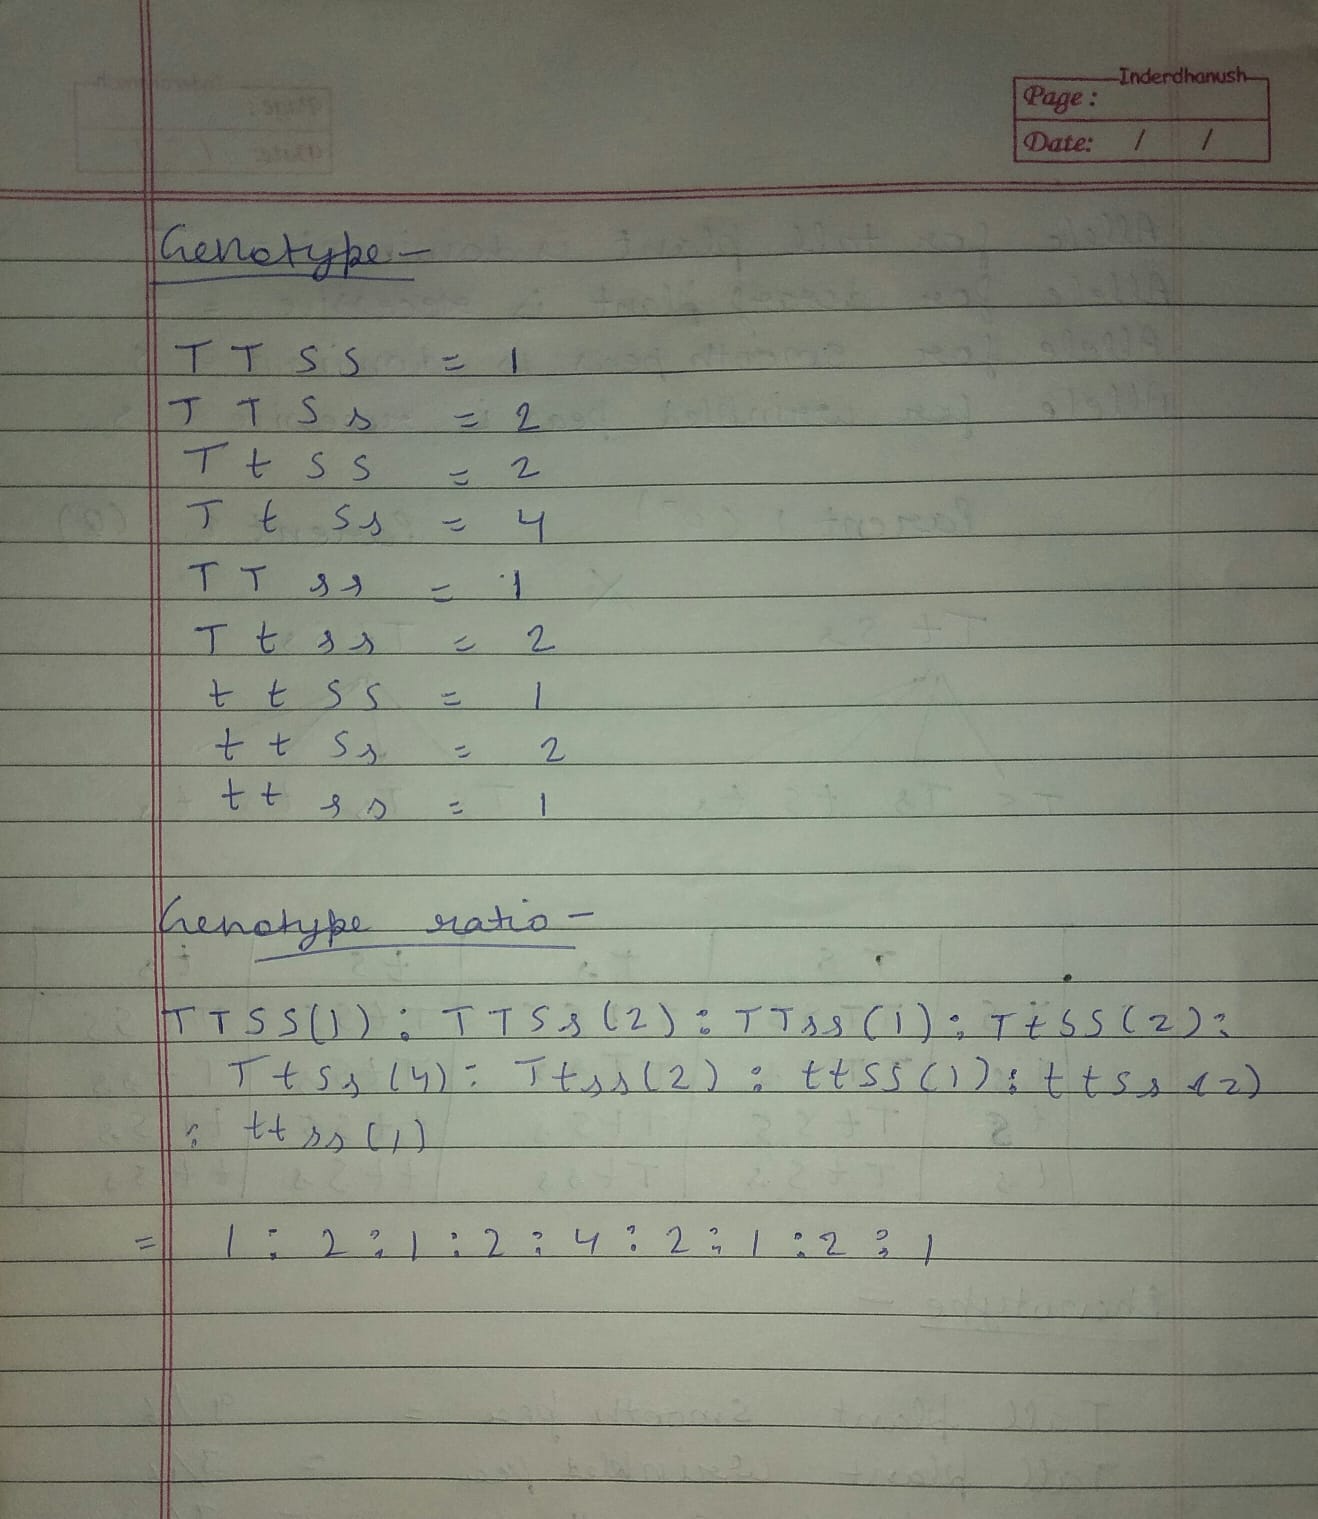 Inderdhanush
Page :
Date: / /
Genotype -
T T S S = 1
T T S s = 2
T t S S = 2
T t S s = 4
T T s s = 1
T t s s = 2
t t S S = 1
t t S s = 2
t t s s = 1
Genotype ratio -
TTSS(1) : TTSs(2) : TTss(1) : TtSS(2) :
TtSs(4) : Ttss(2) : ttSS(1) : ttSs(2)
: ttss(1)
= 1 : 2 : 1 : 2 : 4 : 2 : 1 : 2 : 1